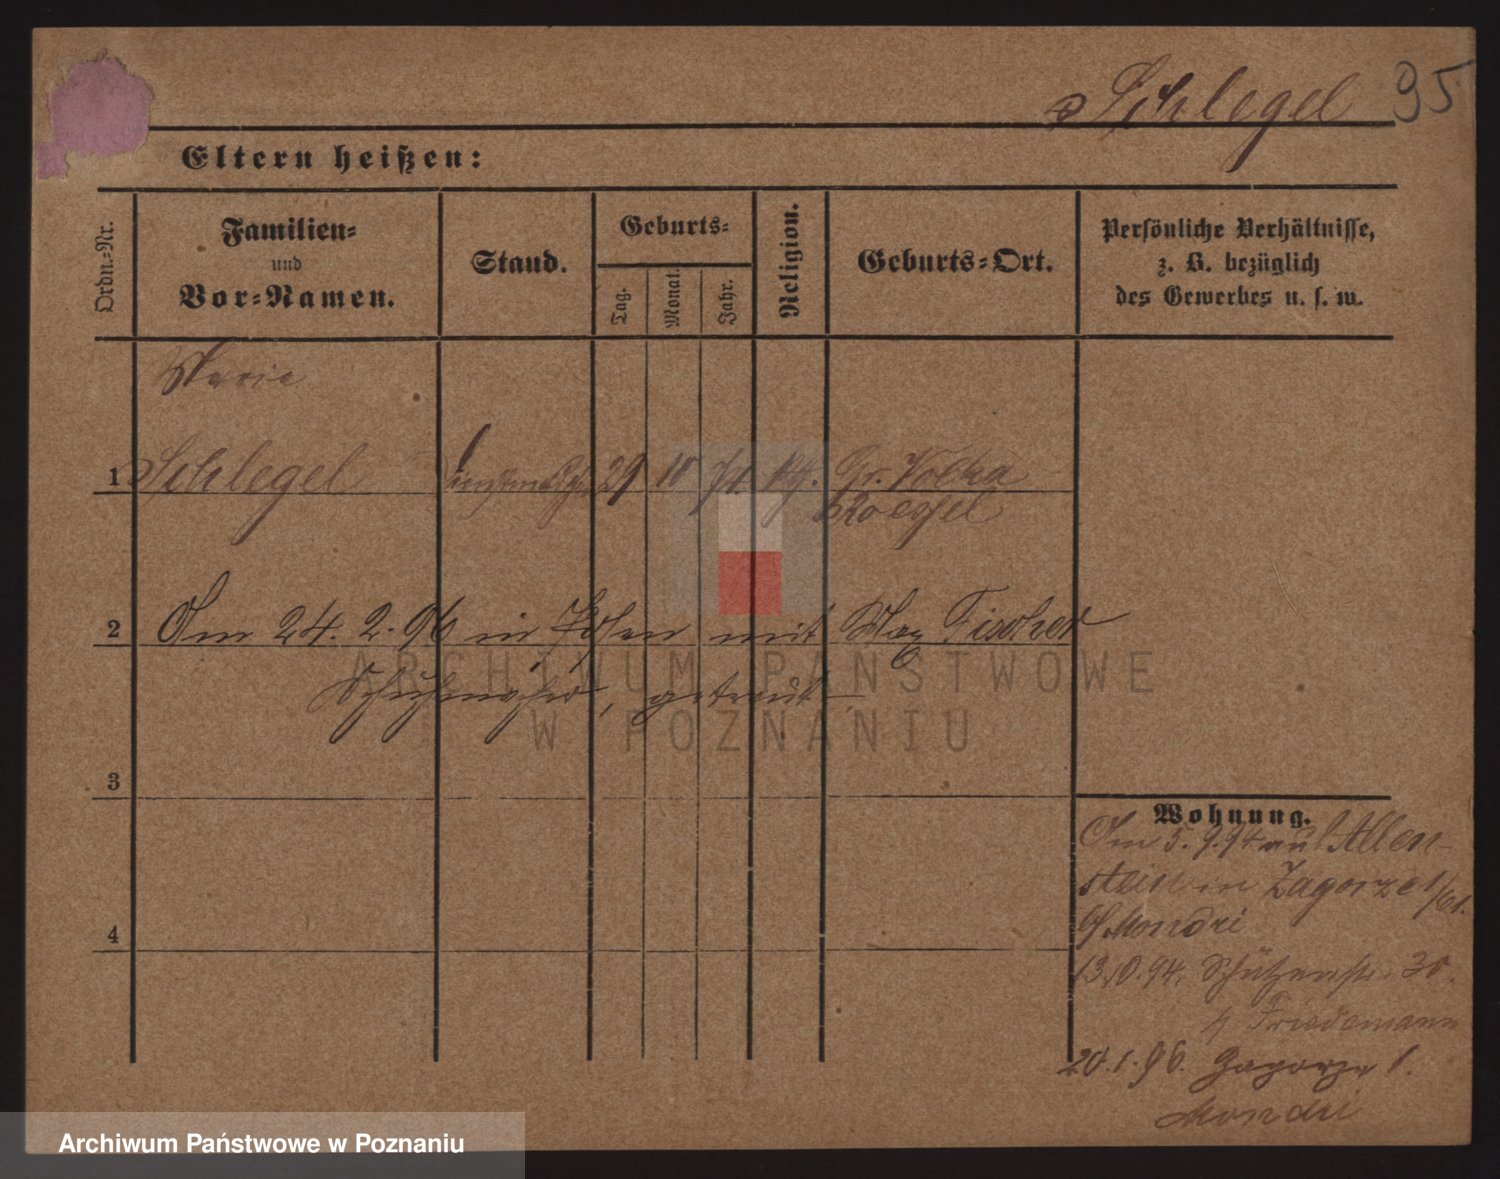 Schlegel 95
Eltern heißen:
Ordn.-Nr.
Familien-
und
Vor-Namen.
Stand.
Geburts-
Tag.
Monat.
Jahr.
Religion.
Geburts-Ort.
Persönliche Verhältnisse,
z. B. bezüglich
des Gewerbes u. s. w.
Marie
1 Schlegel 29 10 71 Gr. Volka
Kr Roessel
2 Am 24. 2. 96 in Posen mit Max Fischer
Schuhmacher, getraut
3
4
Wohnung.
Am 5. 9. 94 aus Allen-
stein in Zagorze 1/61.
b/ Mondri
13.10.94. Schützenstr. 30.
b/ Friedemann
20.1.96. Zagorze 1.
Mondri
ARCHIWUM PAŃSTWOWE
W POZNANIU
Archiwum Państwowe w Poznaniu